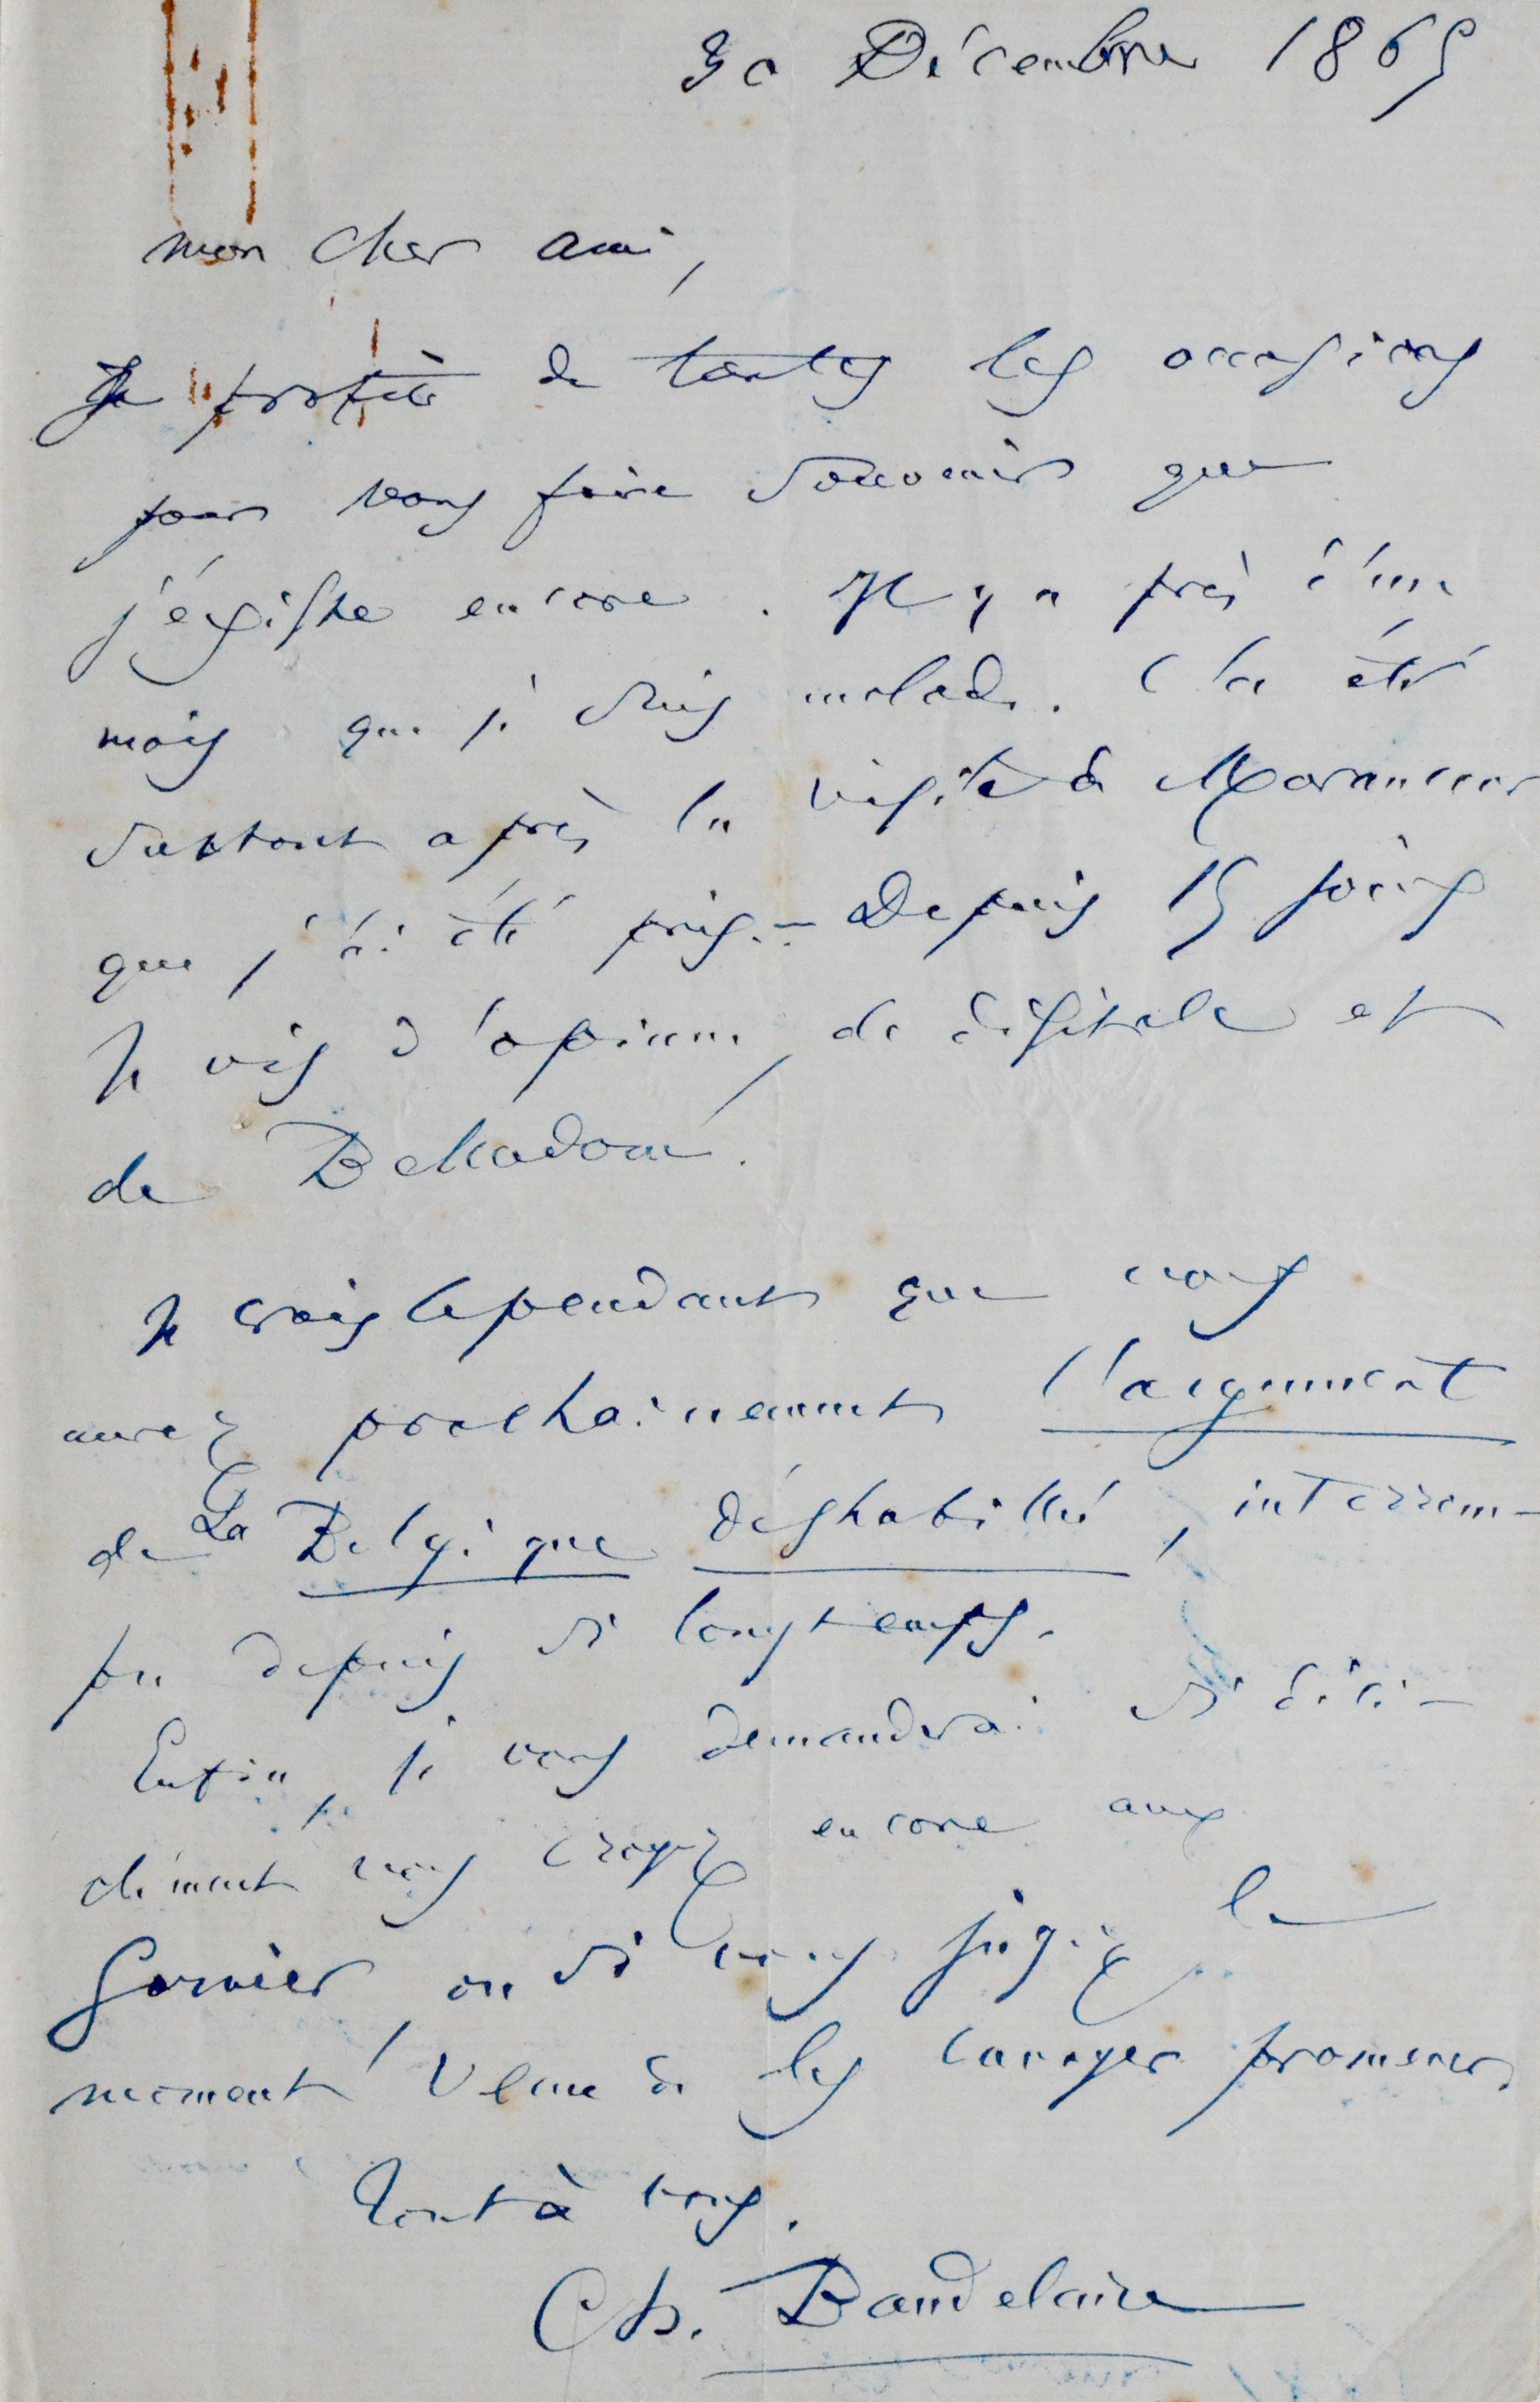 30 Décembre 1865
mon cher ami,
Je profite de toutes les occasions
pour vous faire souvenir que
j'existe encore. Il y a près d'un
mois que je suis malade. C'a été
surtout après la visite de
que j'ai été pris. – Depuis 15 jours
je vis d'opium, de digitale et
de Belladone.
Je crois cependant que vous
aurez prochainement l'argument
de La Belgique déshabillée, interrom-
pu depuis si longtemps.
Enfin, je vous demanderai si déci-
dément vous croyez encore aux
Garnier, ou si vous jugez le
moment venu de les envoyer promener.
Tout à vous.
Ch. Baudelaire